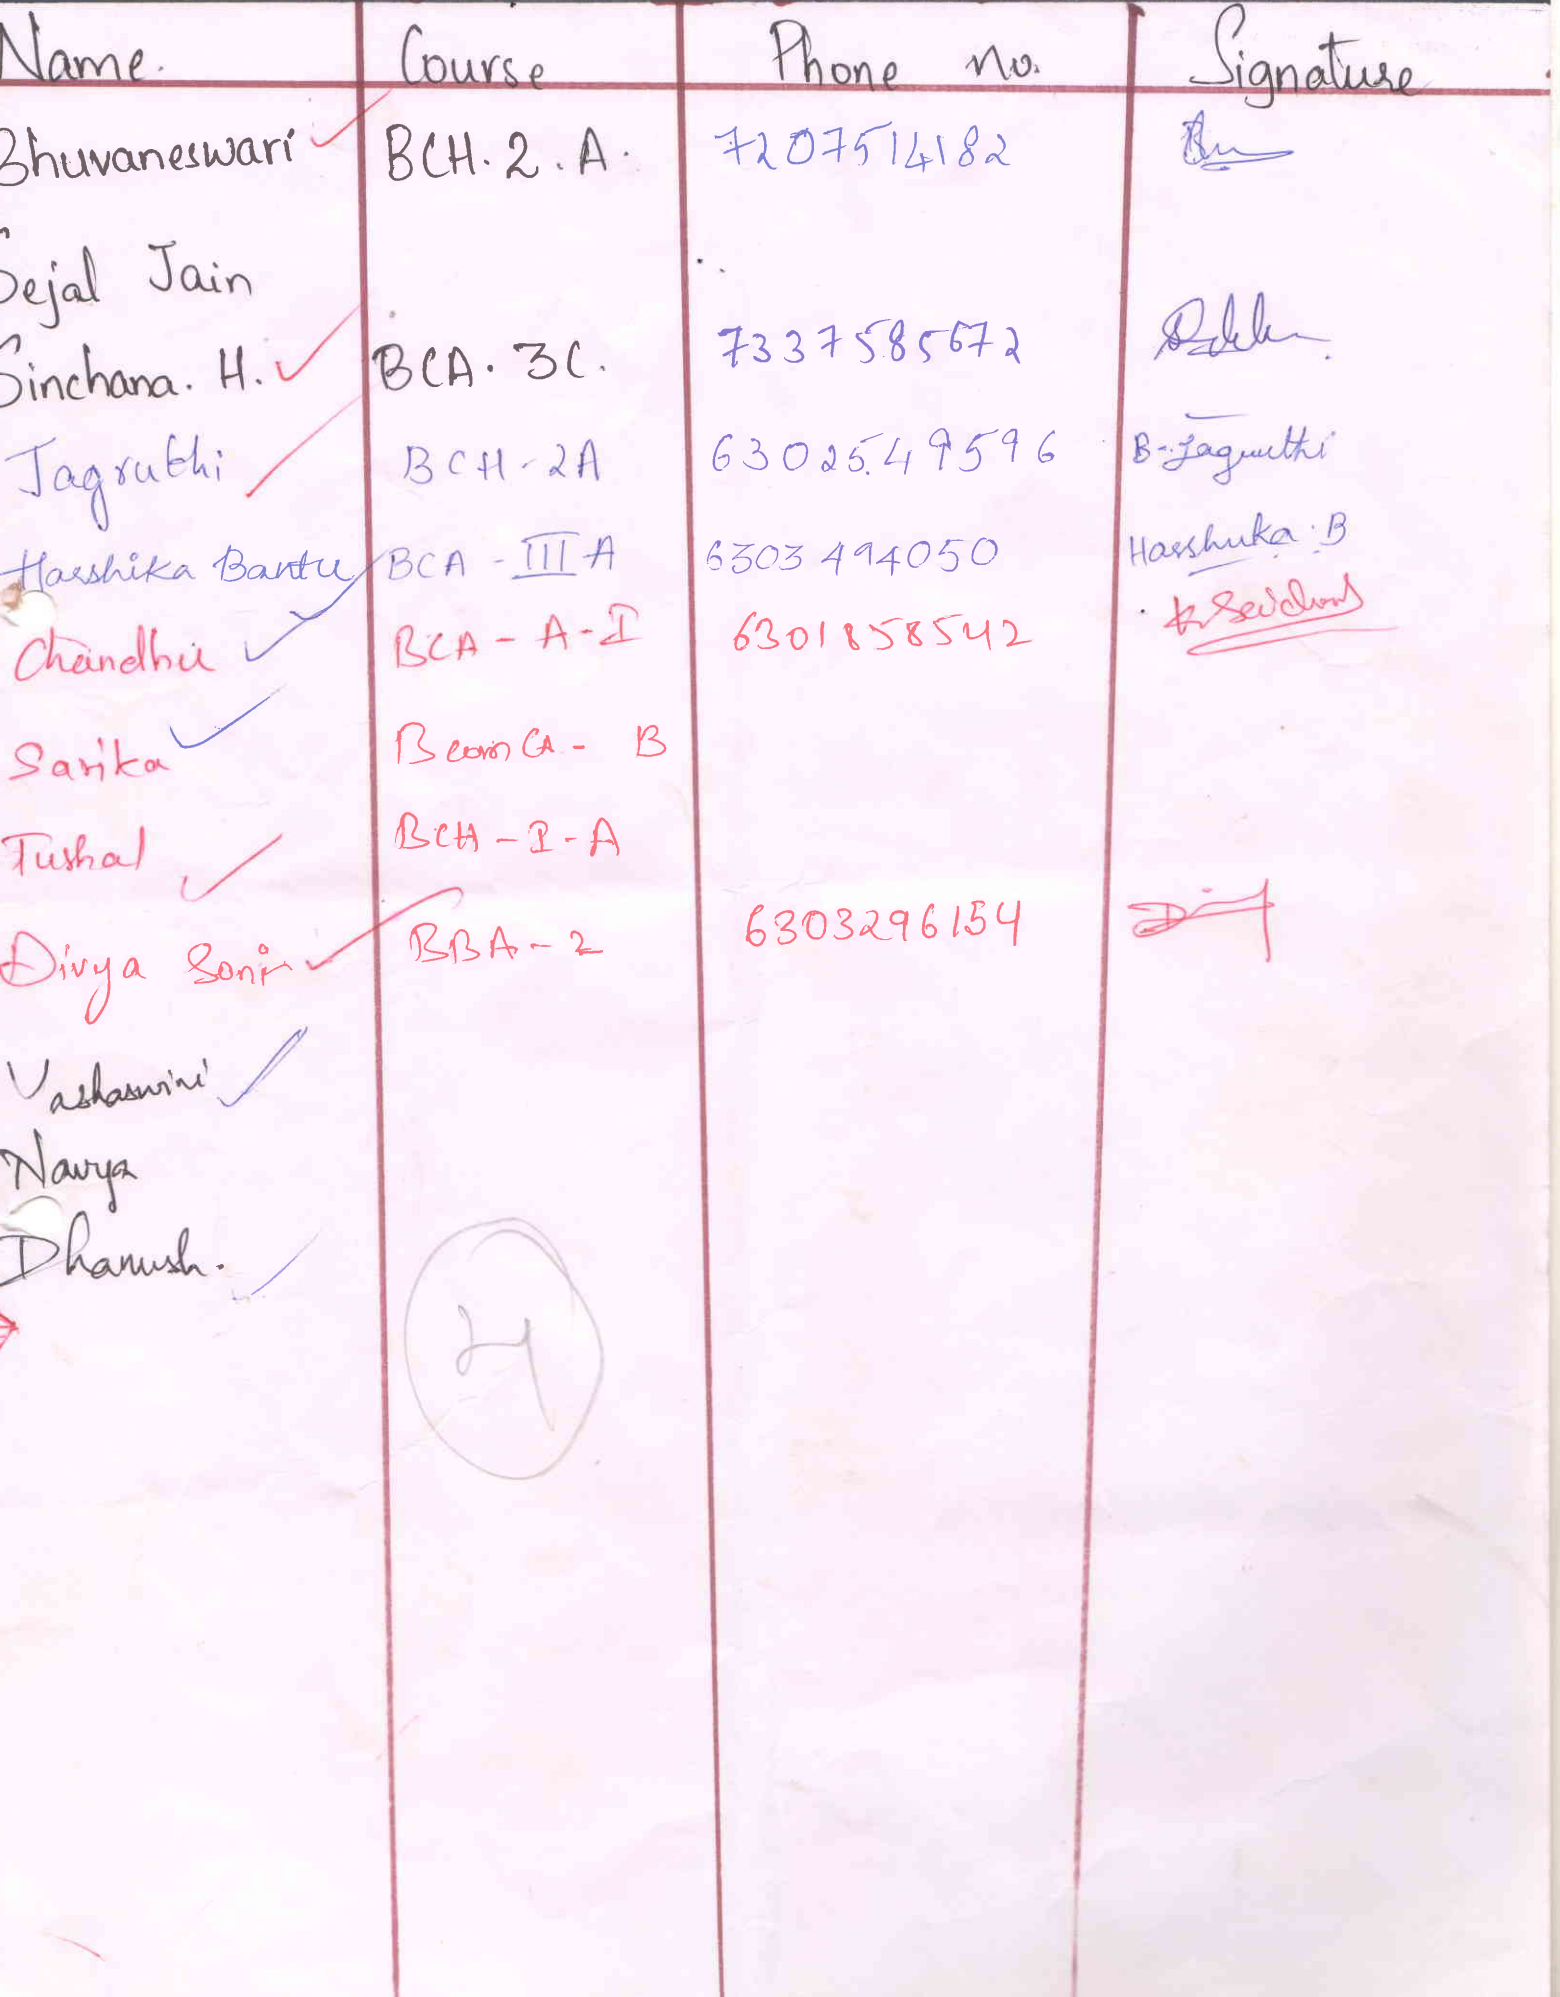 Name. Course Phone no. Signature
Bhuvaneswari BCH. 2. A. 7207514182
Sejal Jain
Sinchana. H. BCA. 3C. 7337585672
Jagruthi BCH - 2A 6302549596 B. Jagruthi
Harshika Bantu BCA - III A 6303494050 Harshika. B
Chandhu BCA - A - I 6301858542
Sarika Bcom CA - B
Tushal BCH - I - A
Divya Soni BBA - 2 6303296154
Yashaswini
Navya
Dhanush.